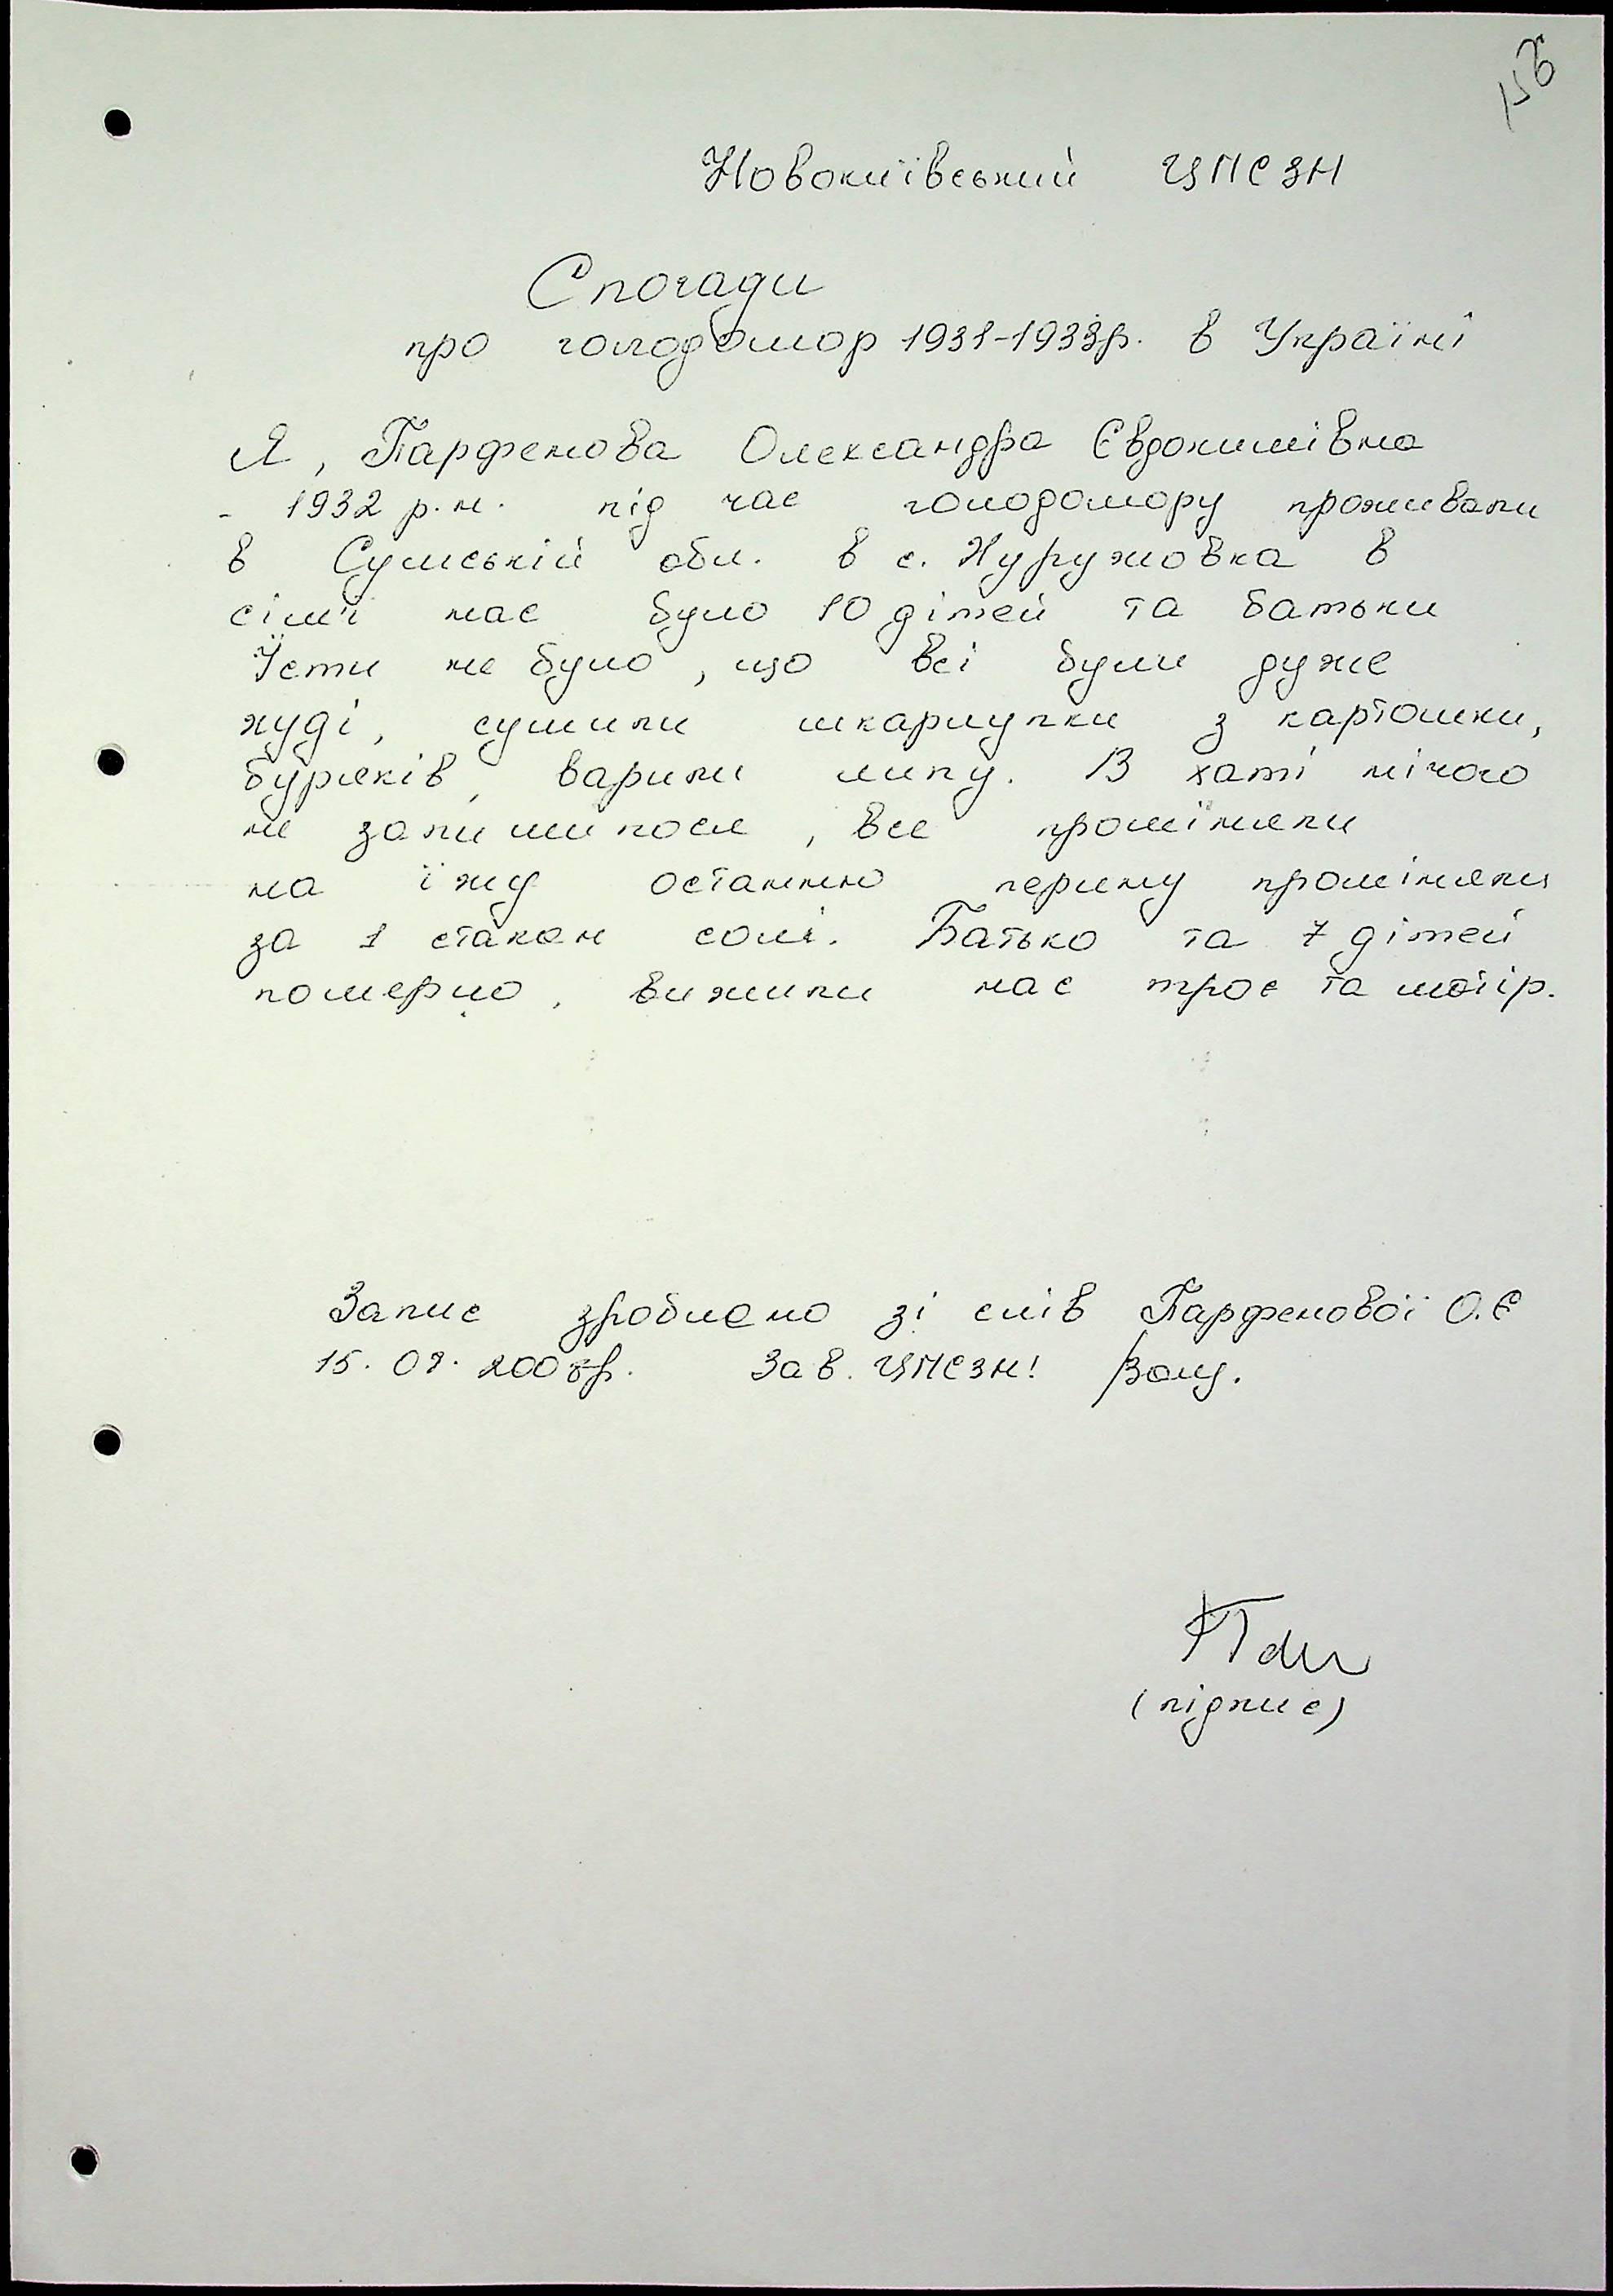 156
Новокиївський ЦПСЗН
Спогади
про голодомор 1931-1933р. в Україні
Я, Парфенова Олександра Євдокимівна
- 1932 р.н. під час голодомору проживали
в Сумській обл. в с. Хуружовка в
сім'ї нас було 10 дітей та батьки
Їсти не було, що всі були дуже
худі, сушили шкарлупки з картошки,
буряків, варили липу. В хаті нічого
не залишилося, все проміняли
на їжу останню перину проміняли
за 1 стакан солі. Батько та 7 дітей
померло, вижили нас троє та матір.
Запис зроблено зі слів Парфенової О.Є
15.09.2008р. Зав. ЦПСЗН!
(підпис)